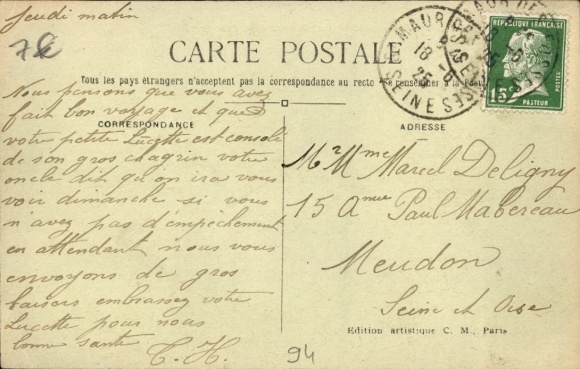 Jeudi matin
7€
CARTE POSTALE
Tous les pays étrangers n'acceptent pas la correspondance au recto
CORRESPONDANCE
Nous pensons que vous avez
fait bon voyage et que
votre petite Lucette est consolé
de son gros chagrin votre
oncle dit qu on ira vous
voir dimanche si vous
n'avez pas d'empèchement
en attendant nous vous
envoyons de gros
baisers embrassez votre
Lucette pour nous
bonne santé
C. H.
ADRESSE
Mr Mme Marcel Deligny
15 Anue Paul Mabereau
Meudon
Seine et Oise
Edition artistique C. M., Paris
94
REPUBLIQUE FRANÇAISE
15c
POSTES
PASTEUR
18 -6
25